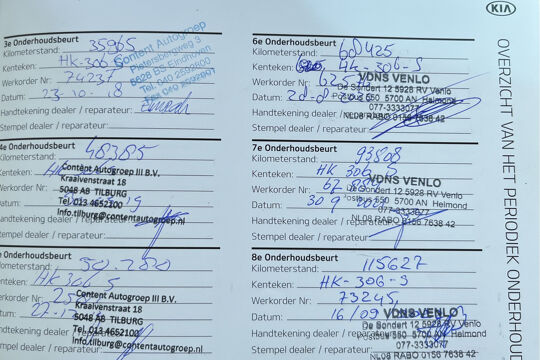 KIA
OVERZICHT VAN HET PERIODIEK ONDERHOUD
3e Onderhoudsbeurt
Kilometerstand: 35965
Kenteken: HK-306-S
Werkorder Nr: 74237
Datum: 23-10-18
Handtekening dealer / reparateur:
Stempel dealer / reparateur:
Content Autogroep
Pietersbergweg 3
5628 BS Eindhoven
Tel. 040 2592600
4e Onderhoudsbeurt
Kilometerstand: 48385
Kenteken: HK
Werkorder Nr:
Datum:
Handtekening dealer / reparateur:
Stempel dealer / reparateur:
Content Autogroep III B.V.
Kraaivenstraat 18
5048 AB TILBURG
Tel. 013 4652100
Info.tilburg@contentautogroep.nl
Onderhoudsbeurt
Kilometerstand:
Kenteken: HK-306-S
Werkorder Nr:
Datum:
Handtekening dealer / reparateur:
Stempel dealer / reparateur:
Content Autogroep III B.V.
Kraaivenstraat 18
5048 AB TILBURG
Tel. 013 4652100
Info.tilburg@contentautogroep.nl
6e Onderhoudsbeurt
Kilometerstand:
Kenteken: HK-306-S
Werkorder Nr:
Datum:
Handtekening dealer / reparateur:
Stempel dealer / reparateur:
VDNS VENLO
De Sondert 12 5928 RV Venlo
Postbus 550 5700 AN Helmond
077-3333077
NL08 RABO 0156 7638 42
7e Onderhoudsbeurt
Kilometerstand: 93508
Kenteken: HK 306-S
Werkorder Nr:
Datum: 30 9
Handtekening dealer / reparateur:
Stempel dealer / reparateur:
VDNS VENLO
De Sondert 12 5928 RV Venlo
Postbus 550 5700 AN Helmond
077-3333077
NL08 RABO 0156 7638 42
8e Onderhoudsbeurt
Kilometerstand: 115627
Kenteken: HK-306-S
Werkorder Nr: 73245
Datum: 16/09
Handtekening dealer / reparateur:
Stempel dealer / reparateur:
VDNS VENLO
De Sondert 12 5928 RV Venlo
Postbus 550 5700 AN Helmond
077-3333077
NL08 RABO 0156 7638 42